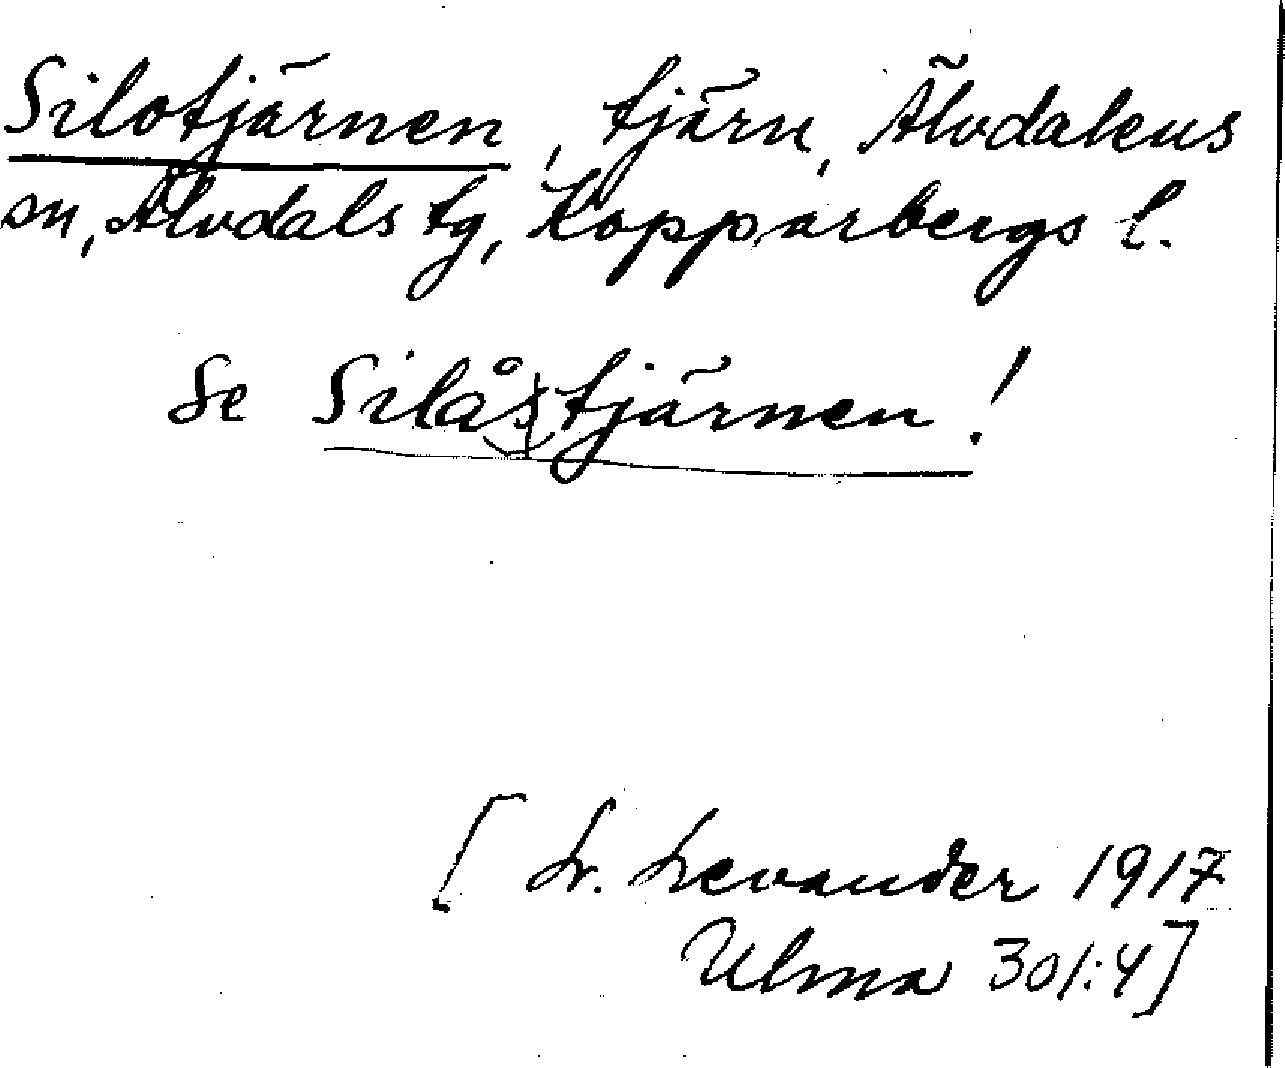 Silotjärnen, tjärn, Älvdalens
sn, Älvdals tg, Kopparbergs l.
Se Silåstjärnen!
[L. Levander 1917
Ulma 301:4]